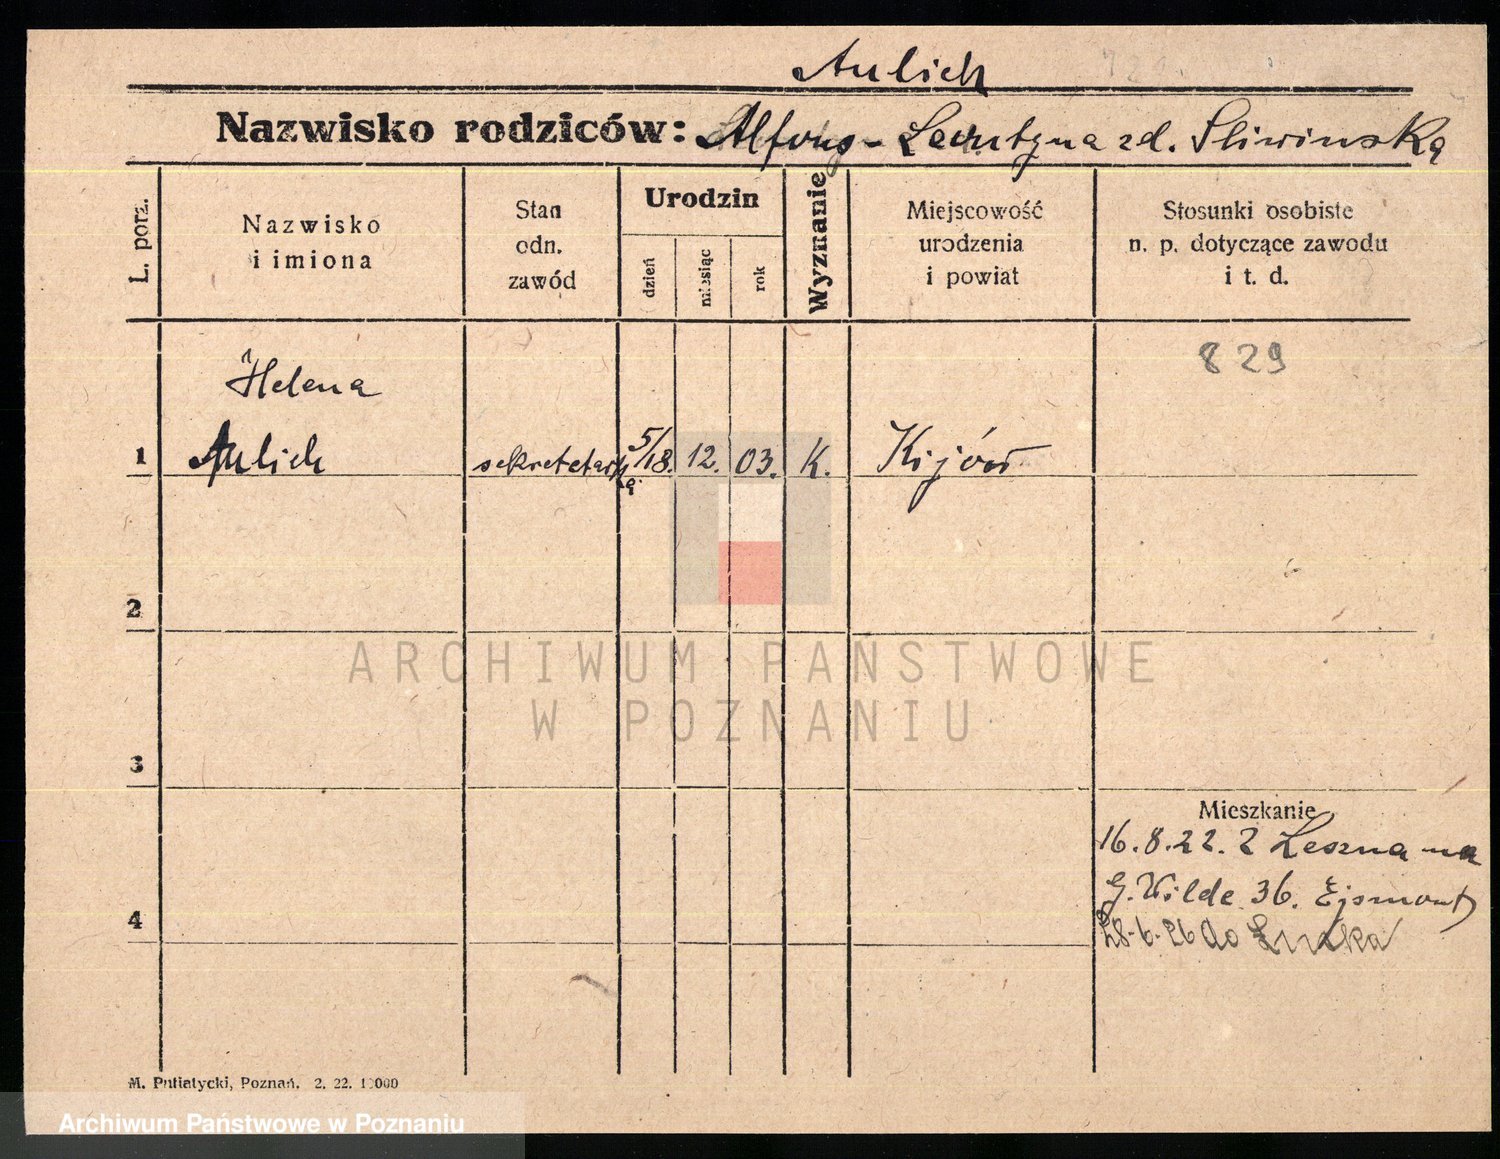 Aulich
Nazwisko rodziców: Alfons - Leontyna zd. Śliwińska
L. porz.
Nazwisko
i imiona
Stan
odn.
zawód
Urodzin
dzień
miesiąc
rok
Wyznanie
Miejscowość
urodzenia
i powiat
Stosunki osobiste
n. p. dotyczące zawodu
i t. d.
829
Helena
1 Aulich sekretarką 5/18. 12. 03. K. Kijów
2
3
4
Mieszkanie
16.8.22. z Leszna na
G. Wilde 36. Ejsmont
28-6-26 do Łucka
M. Putiatycki, Poznań. 2. 22. 10000
ARCHIWUM PAŃSTWOWE
W POZNANIU
Archiwum Państwowe w Poznaniu